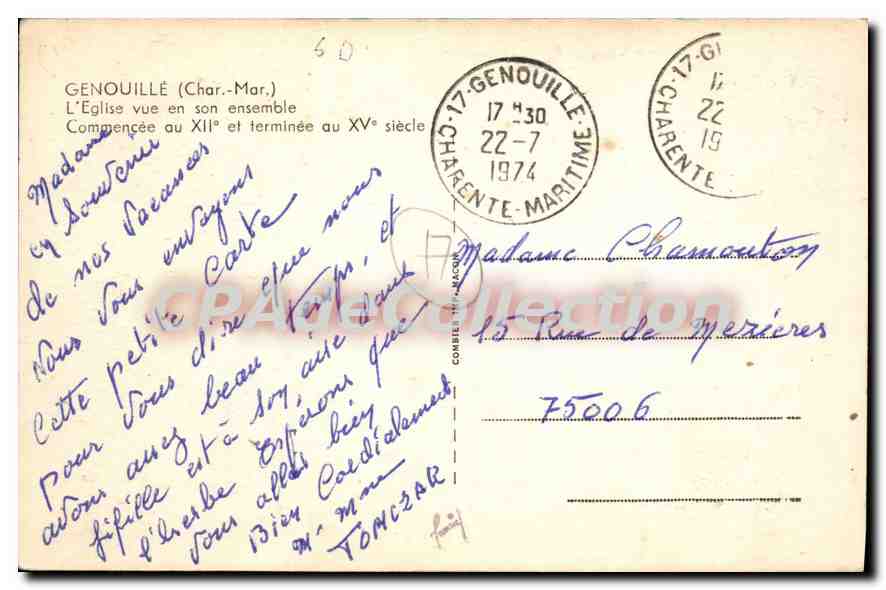 6 D
GENOUILLÉ (Char.-Mar.)
L'Eglise vue en son ensemble
Commencée au XIIe et terminée au XVe siècle
17-GENOUILLE
17 H 30
22-7
1974
CHARENTE-MARITIME
17-G
22
19
CHARENTE
Madame
en Souvenir
de nos vacances
Nous vous envoyons
Cette petite Carte
pour vous dire que nous
avons assez beau temps, et
fifille est à son aise dans
l'herbe Esperons que
vous allez bien
Bien Cordialement
Mr Mme
TOMCZAK
17
COMBIER IMP. MACON
Madame Chamouton
15 Rue de Mezières
75006
CPAdeCollection.com